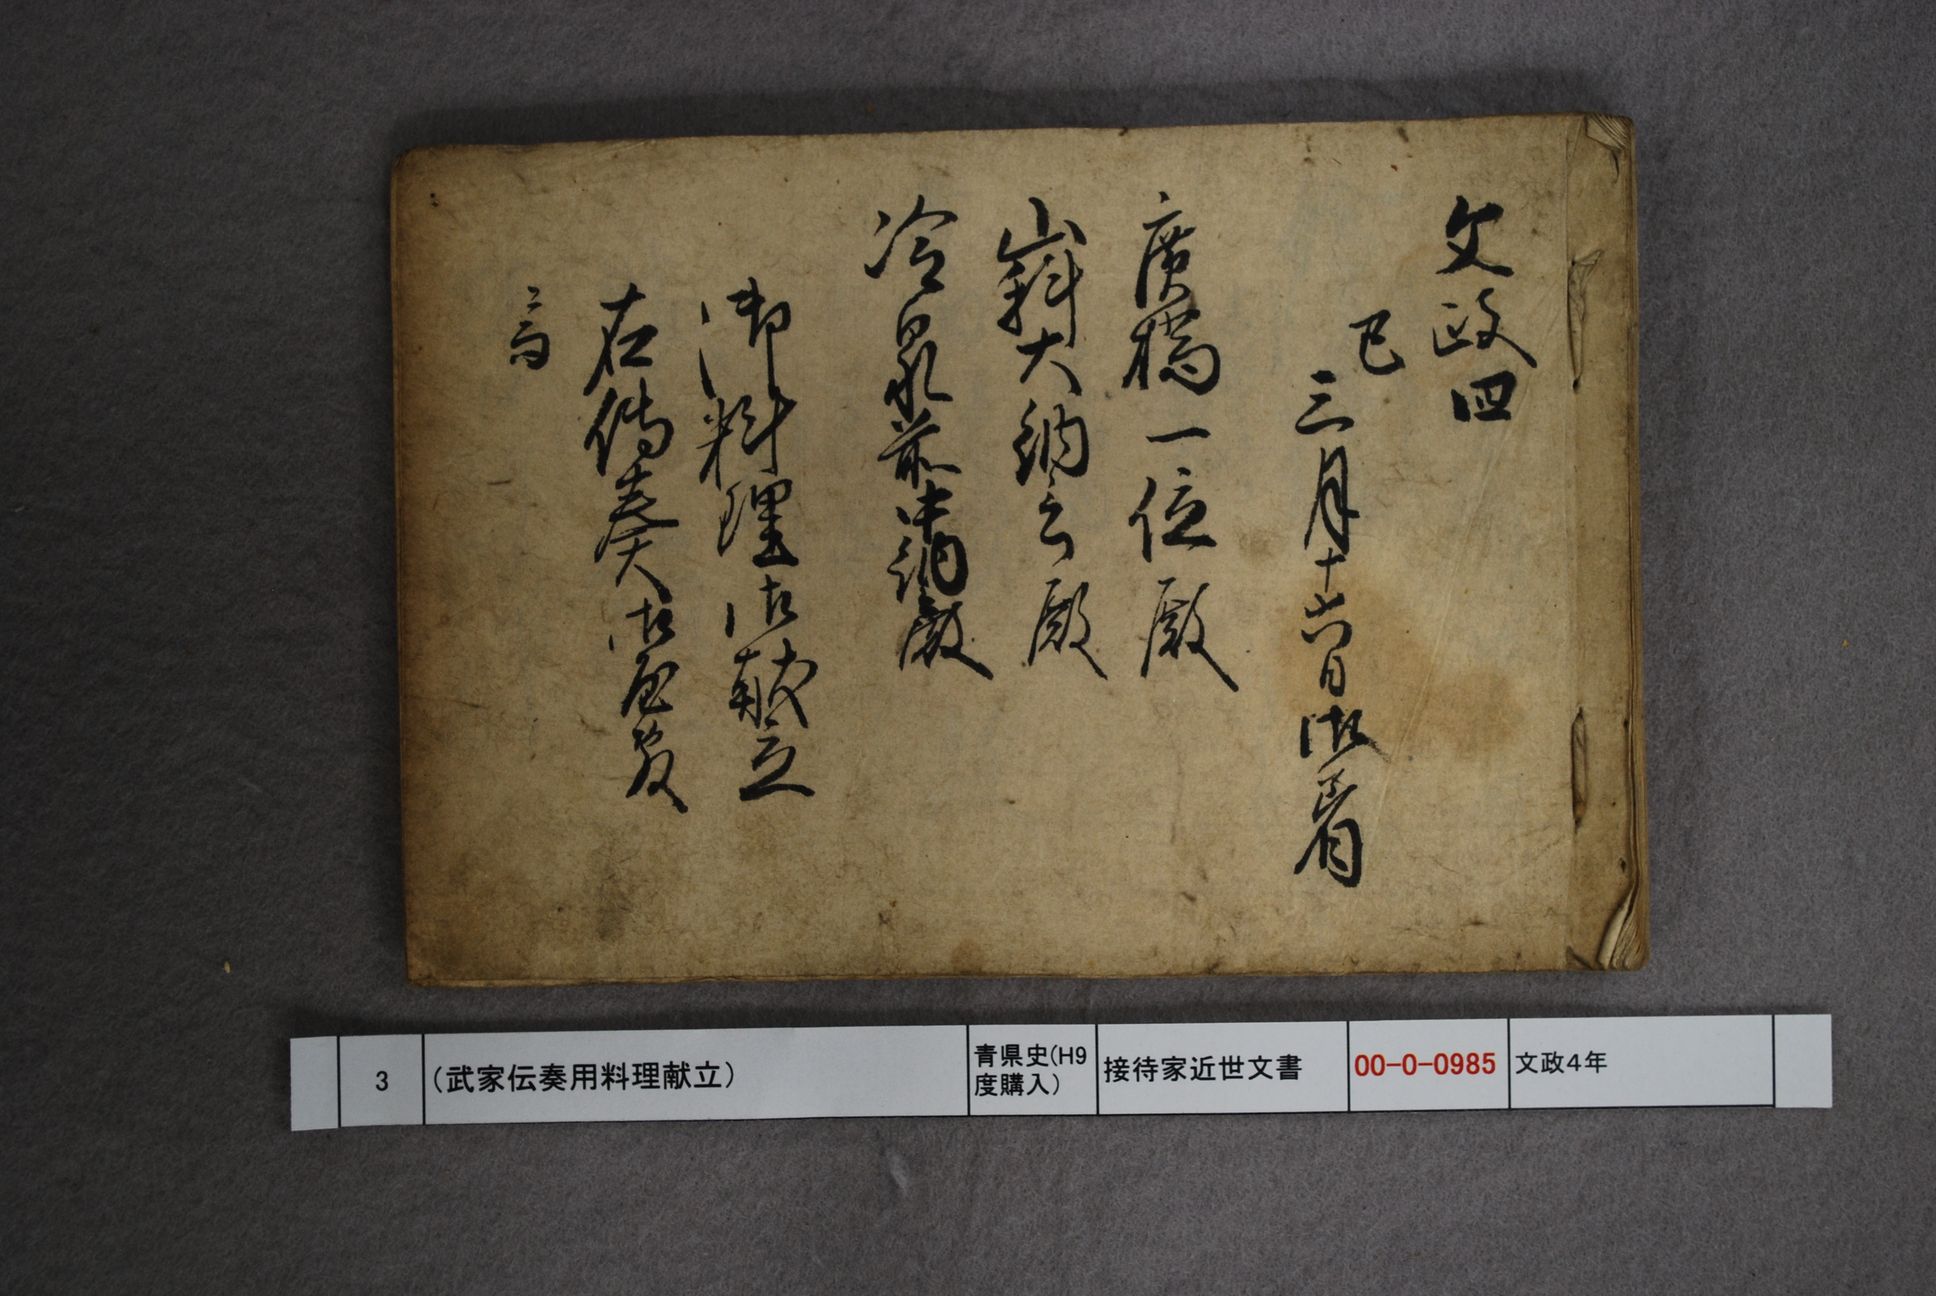 文政四
巳
三月十六日御着
廣橋一位殿
山科大納言殿
冷泉前中納殿
御料理御献立
右傳奏御屋敷
3
(武家伝奏用料理献立)
青県史(H9
度購入)
接待家近世文書
00-0-0985
文政4年